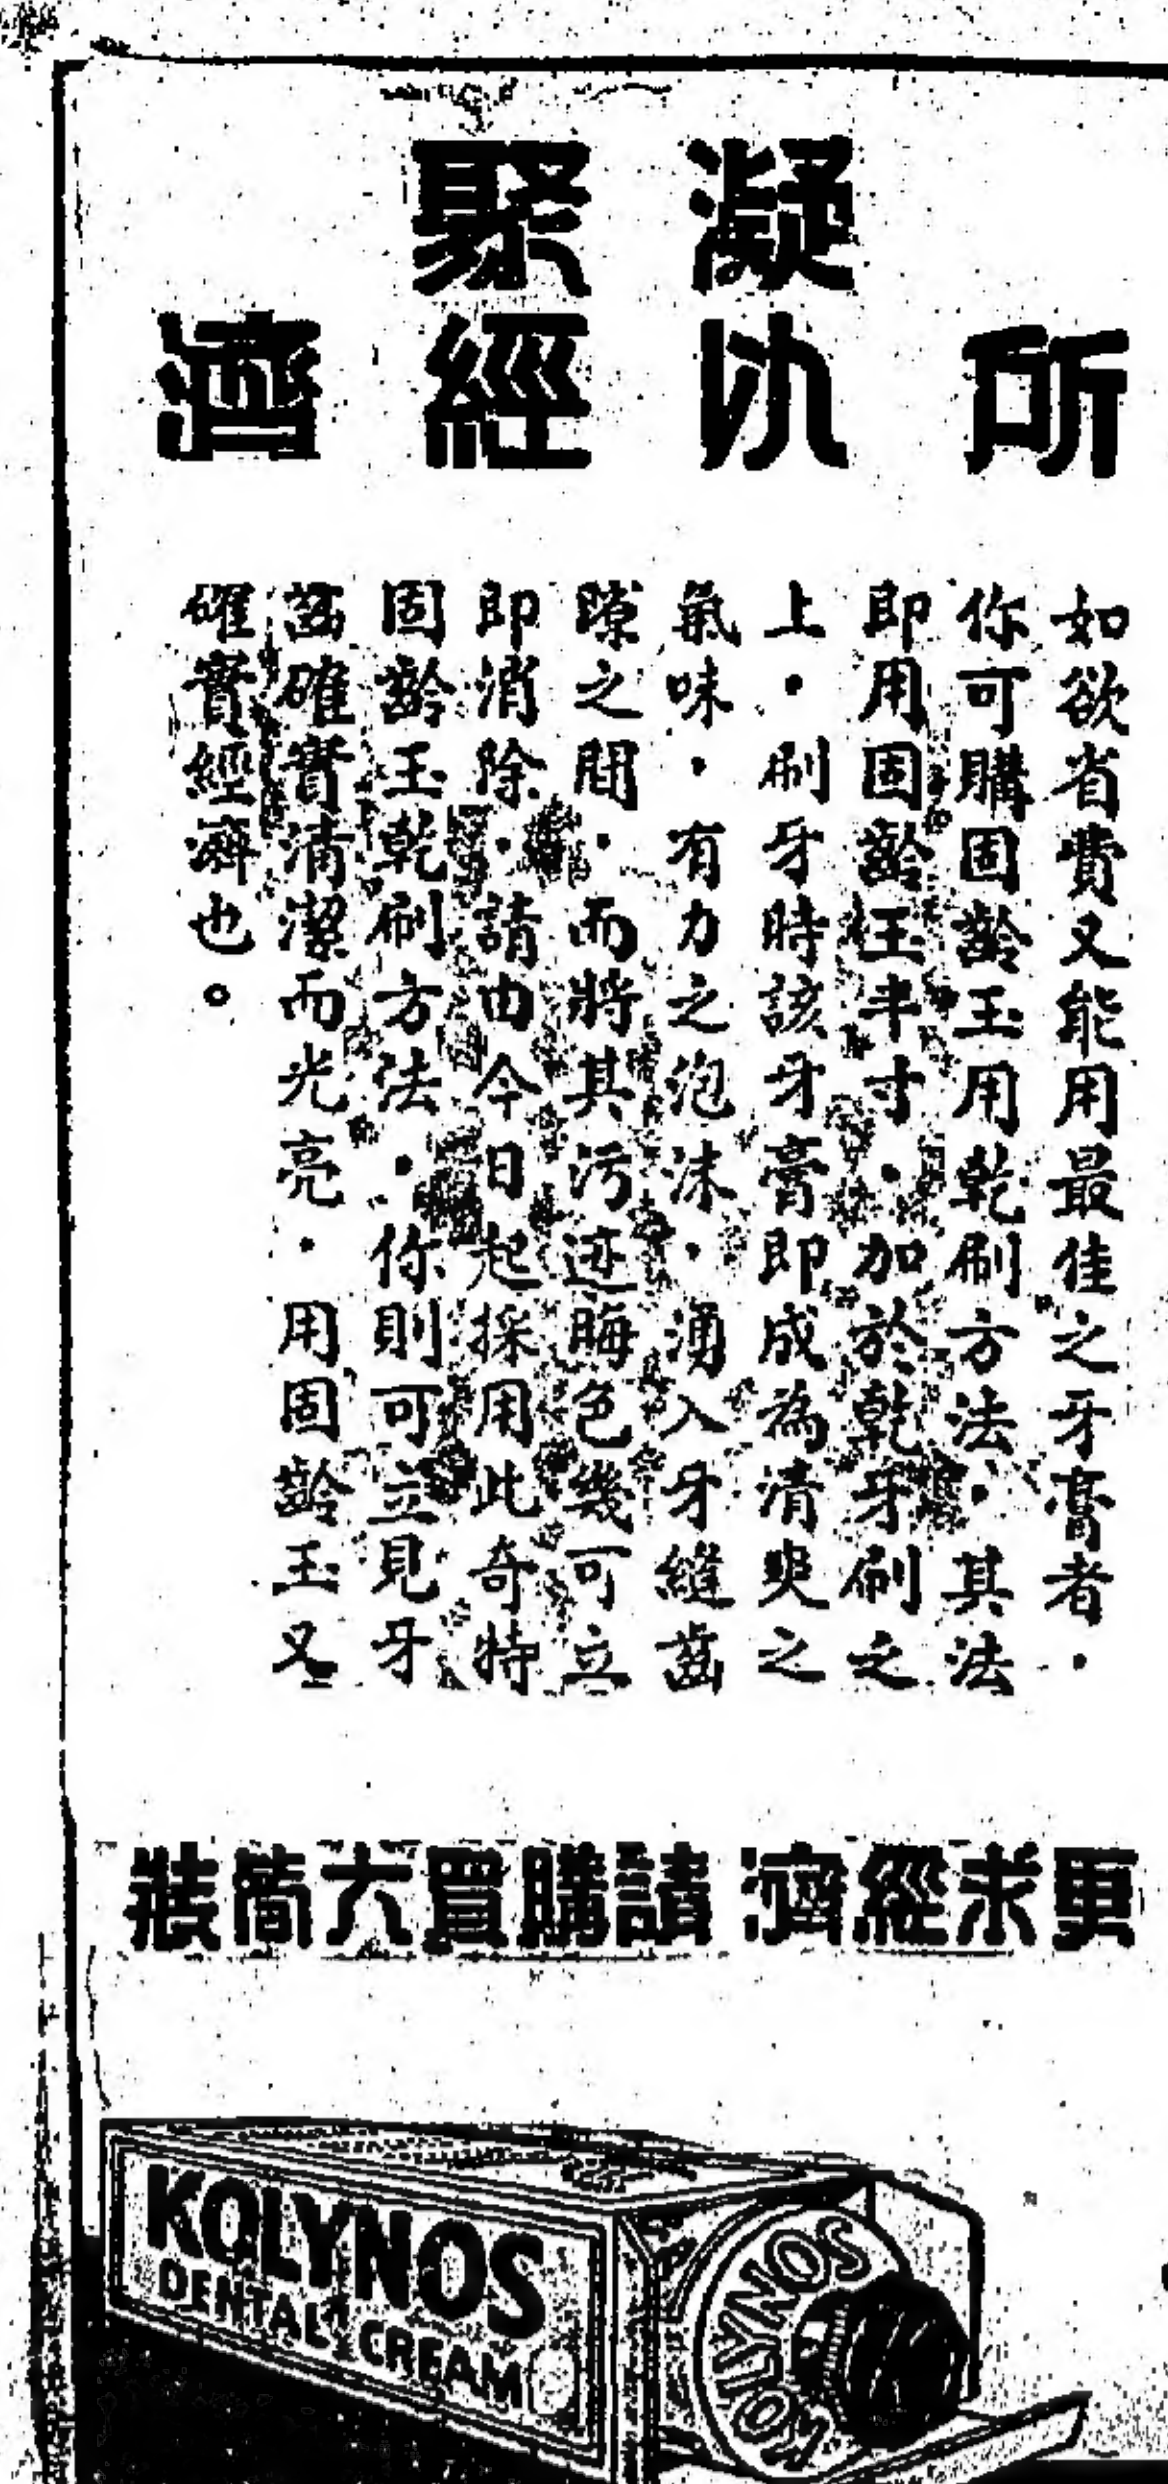 凝聚
所以經濟
如欲省費又能用最佳之牙膏者・
你可購固齡玉用乾刷方法・其法
即用固齡玉半寸・加於乾牙刷之
上・刷牙時該牙膏即成為清爽之
氣味・有力之泡沫・湧入牙縫齒
隙之間・而將其污迹晦色幾可立
即消除・請由今日起採用此奇特
固齡玉乾刷方法・你則可立見牙
齒確實清潔而光亮・用固齡玉又
確實經濟也。
更求經濟 請購買大筒裝
KOLYNOS
DENTAL CREAM
KOLYNOS